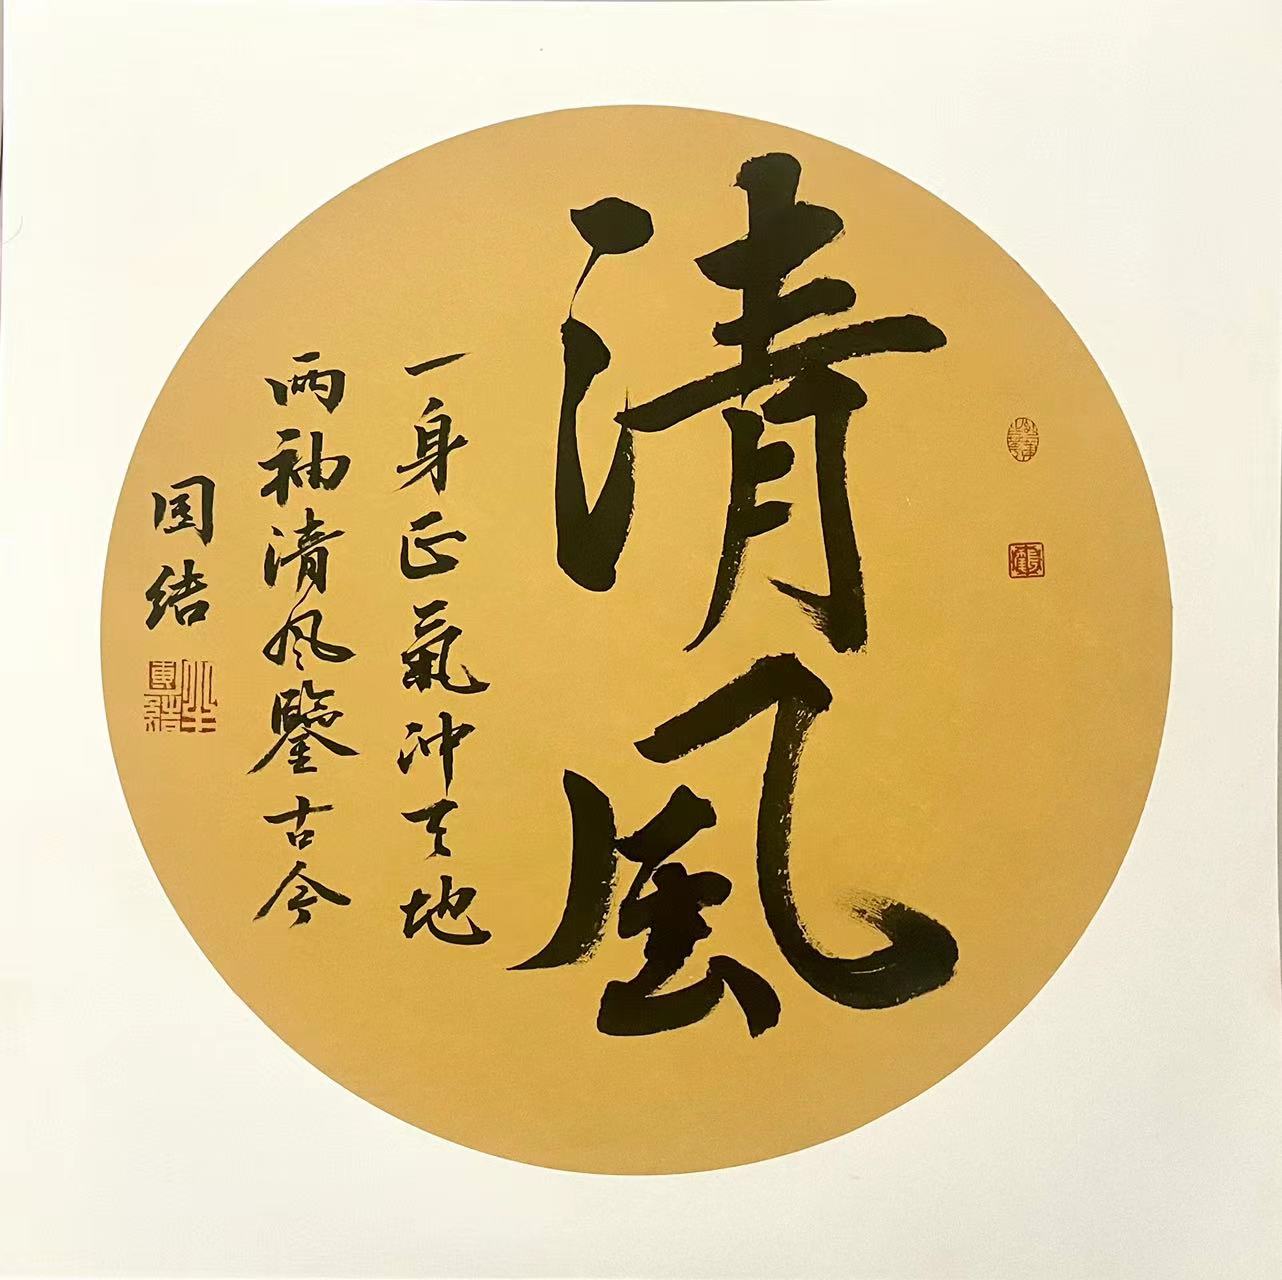 清風
一身正氣沖天地
兩袖清风鑒古今
国结